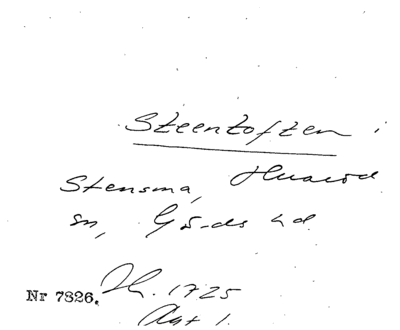 Steentoften i
Stensma, Huarod
sn, Gärds hd
Nr 7326. Jb. 1725
Akt 1.